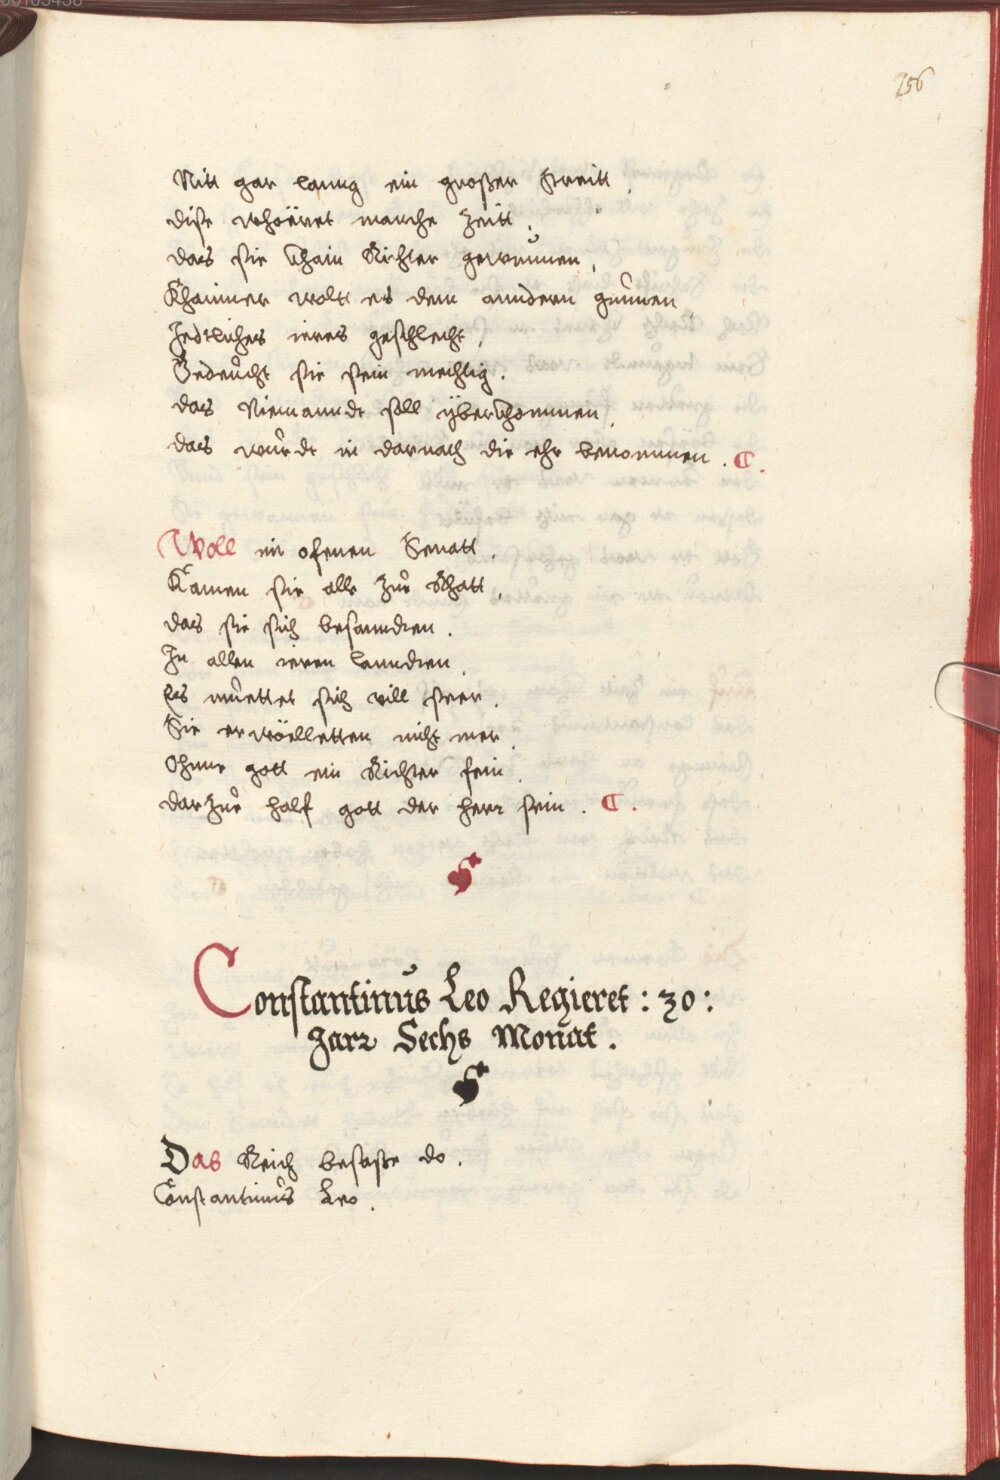 256
Nitt gar lanng ein großer streitt,
dise whöeret manche Zeitt.
das sie khain Richter gewunnen,
Khainner wolt es dem anndern gunnen,
Jedtliches ieres geschlecht,
Gedeucht sie sein mechtig.
das Niemanndt soll yberkhommen,
das wurdt in darnach die ehr benommen. C.
Woll in ofenen Senatt.
Kamen sie alle zue Rhatt,
das sie sich besanndten.
In allen ieren lanndten,
Es muettet sich vill seer.
Sie erwöelletten nicht mer,
Ohnne gott ein Richter sein,
darzue half gott der herr sein. C.
Constantinus Leo Regieret: 30:
Jarr Sechs Monat.
Das Reich besaße do.
Constantinus Leo.